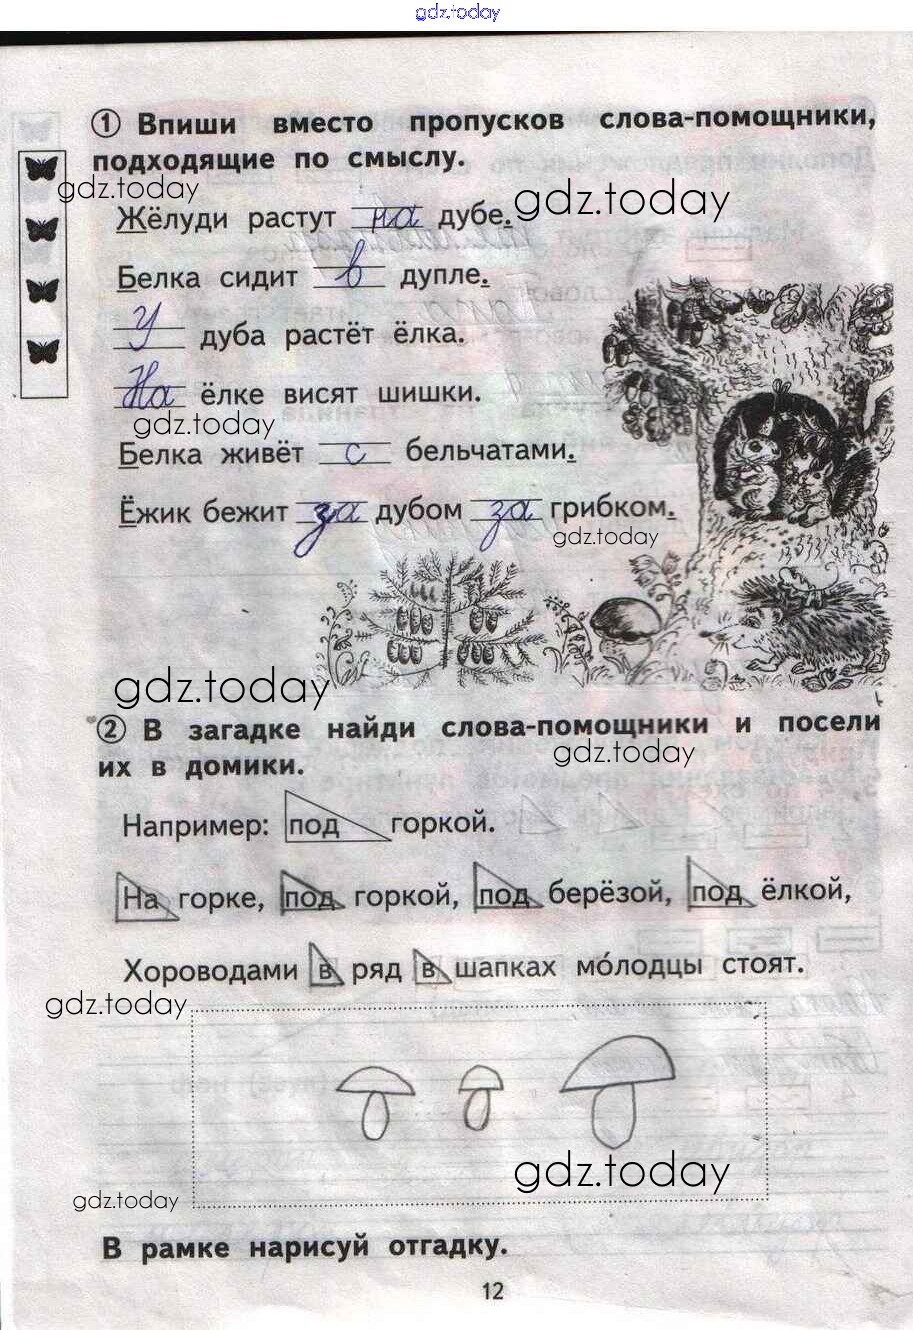 gdz.today
① Впиши вместо пропусков слова-помощники,
подходящие по смыслу.
gdz.today
gdz.today
Жёлуди растут на дубе.
Белка сидит в дупле.
У дуба растёт ёлка.
На ёлке висят шишки.
gdz.today
Белка живёт с бельчатами.
Ёжик бежит за дубом за грибком.
gdz.today
gdz.today
② В загадке найди слова-помощники и посели
gdz.today
их в домики.
Например: под горкой.
На горке, под горкой, под берёзой, под ёлкой,
Хороводами в ряд в шапках мо́лодцы стоят.
gdz.today
gdz.today
gdz.today
В рамке нарисуй отгадку.
12